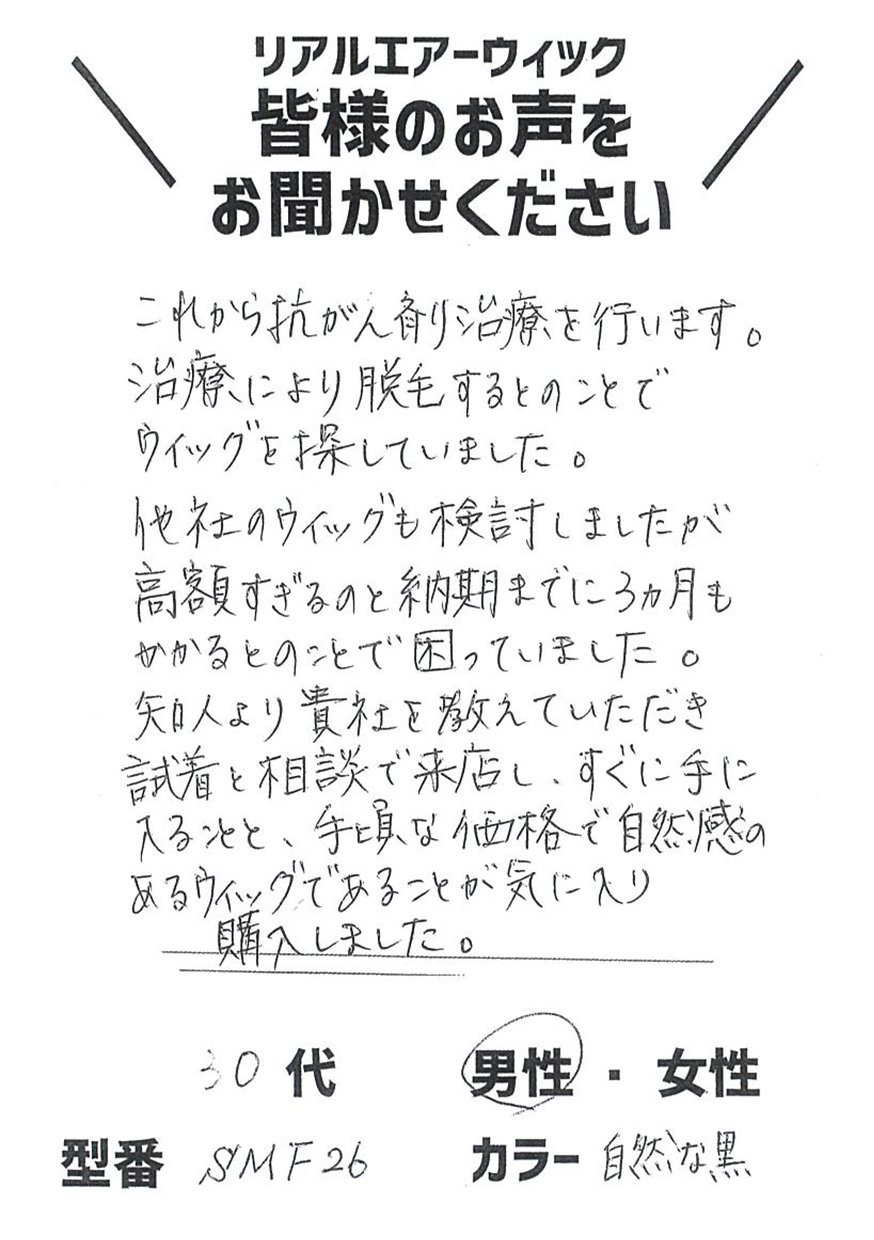 リアルエアーウィック
皆様のお声を
お聞かせください
これから抗がん剤治療を行います。
治療により脱毛するとのことで
ウイッグを探していました。
他社のウイッグも検討しましたが
高額すぎるのと納期までに3ヵ月も
かかるとのことで困っていました。
知人より貴社を教えていただき
試着と相談で来店し、すぐに手に
入ることと、手頃な価格で自然感の
あるウィッグであることが気に入り
購入しました。
30代 男性・女性
型番 SMF26 カラー 自然な黒